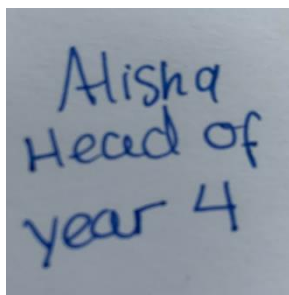 Alisha
Head of
year 4